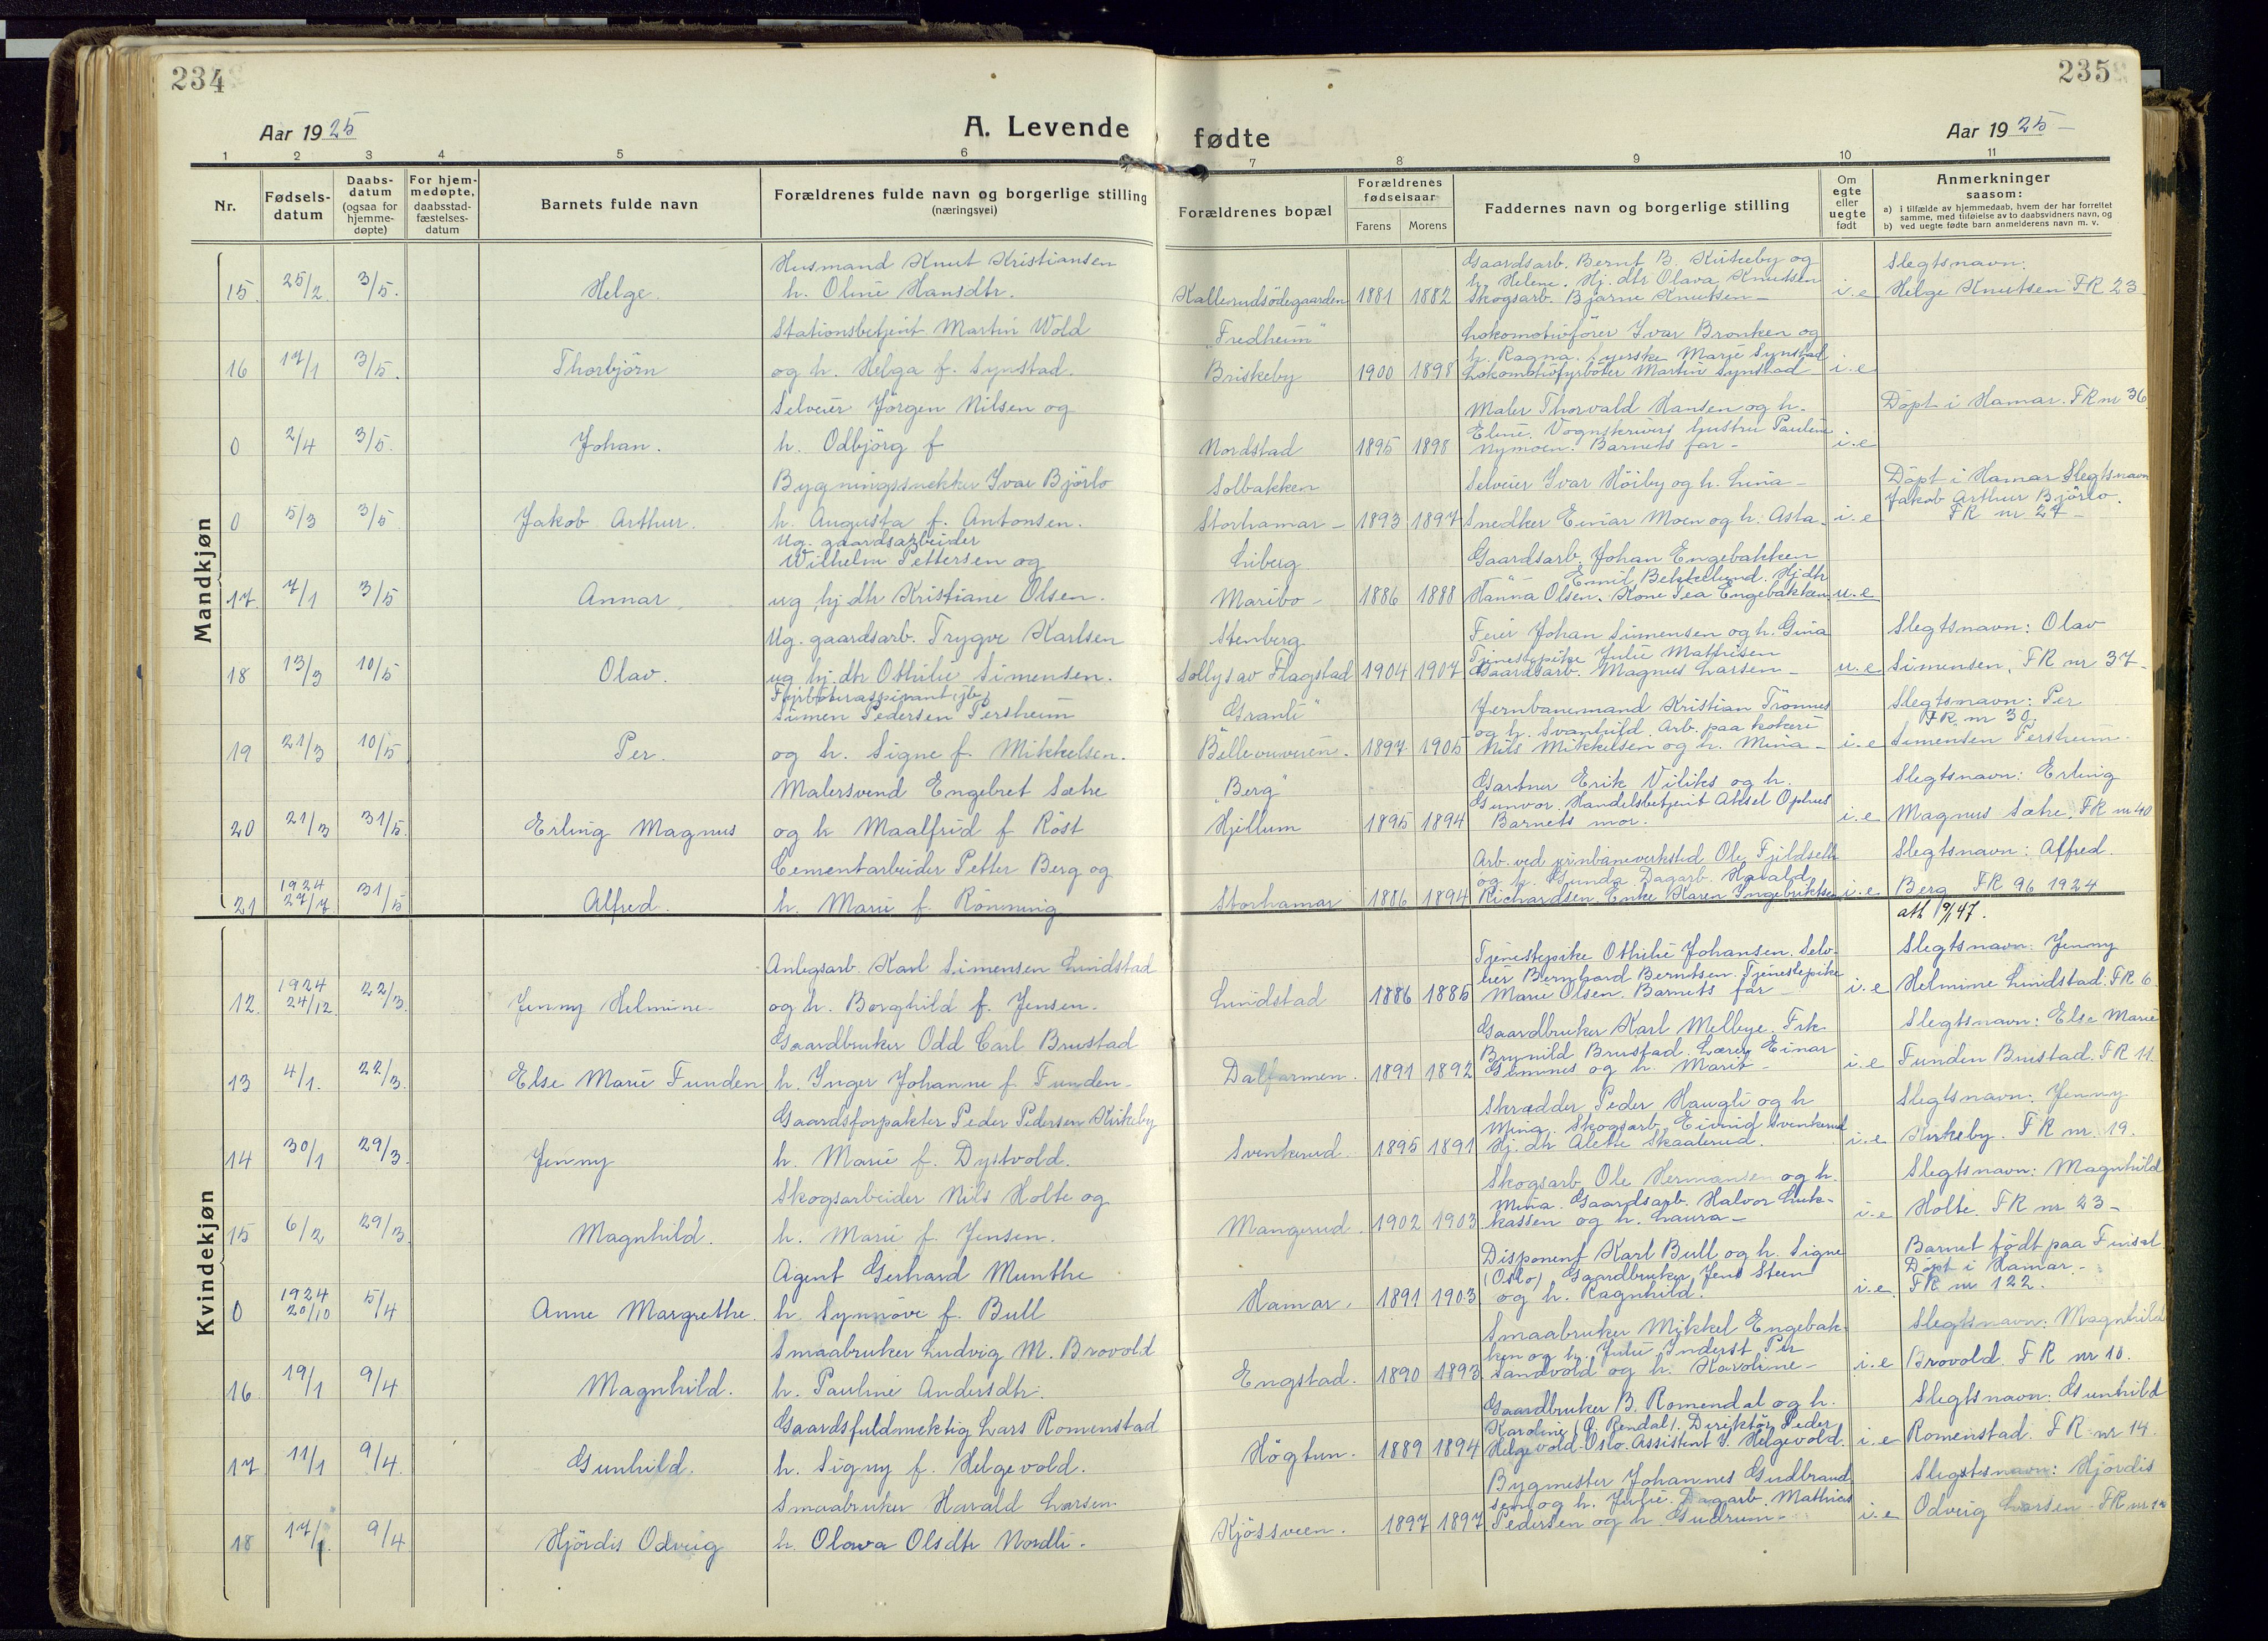 234
235
Aar 1925
A. Levende
fødte
Aar 1925
1 2 3 4 5 6 7 8 9 10 11
Nr.
Fødsels-
datum
Daabs-
datum
(ogsaa for
hjemme-
døpte)
For hjem-
medøpte,
daabsstad-
fæstelses-
datum
Barnets fulde navn
Forældrenes fulde navn og borgerlige stilling
(næringsvei)
Forældrenes bopæl
Forældrenes
fødselsaar
Farens Morens
Faddernes navn og borgerlige stilling
Om
egte
eller
uegte
født
Anmerkninger
saasom:
a) i tilfælde av hjemmedaab, hvem der har forrettet
samme, med tilføielse av to daabsvidners navn, og
b) ved uegte fødte barn anmelderens navn m. v.
Mandkjøn
15. 25/2 3/5. Helge.
Husmand Knut Kristiansen
h. Oline Hansdtr.
Kallerudsödegaarden 1881 1882
Gaardsarb. Bernt B. Kirkeby og
h. Helene. Hj. dtr Olava Knutsen
Skogsarb. Bjarne Knutsen –
i.e
Slegtsnavn:
Helge Knutsen FR 23
16 17/1 3/5. Thorbjörn
Stationsbetjent Martin Wold
og h. Helga f. Synstad.
"Fredheim"
Briskeby 1900 1898
Lokomotivförer Ivar Bronken og
h. Ragna. Syerske Marje Synstad
Lokomotivfyrböter Martin Synstad
i.e
0 2/4 3/5 Johan.
Selveier Jörgen Nilsen og
h. Odbjörg f
Nordstad 1895 1898
Maler Thorvald Hansen og h.
Eline. Vognskrivers hustru Pauline
Nymoen. Barnets far –
i.e
Döpt i Hamar. FR nr 36
0 5/3 3/5. Jakob Arthur.
Bygningssnekker Ivar Björlo
h. Augusta f. Antonsen.
Solbakken
Storhamar – 1893 1897
Selveier Ivar Höiby og h. Lina –
Snedker Einar Moen og h. Asta.
i.e
Döpt i Hamar Slegtsnavn
Jakob Arthur Björlo.
FR nr 27 –
17 7/1 3/5 Annar
Ug. gaardsarbeider
Wilhelm Pettersen og
ug hj.dtr Kristiane Olsen.
Liberg
Maribo – 1886 1888
Gaardsarb. Johan Engebakken
Emil Bekkelund. Hj dtr
Hanna Olsen. Kone Pea Engebakken
u.e
18 13/3 10/5 Olav.
Ug. gaardsarb. Trygve Karlsen
ug hj.dtr Othilie Simensen.
Stenberg
Sollys av Flagstad 1904 1907
Feier Johan Simensen og h. Gina
Tjenestepike Julie Mathisen
Gaardsarb. Magnus Larsen –
u.e
Slegtsnavn: Olav
Simensen, FR nr 37 –
19 21/3 10/5 Per.
Fyrböteraspirant (jb.)
Simen Pedersen Persheim
og h. Signe f. Mikkelsen.
"Granli"
Bellevueveien. 1897 1905
Jernbanemand Kristian Trönnes
og h. Svanhild. Arb. paa kokeri
Nils Mikkelsen og h. Mina –
i.e
Slegtsnavn: Per
FR. nr 30.
Simensen Persheim.
20 21/3 31/5. Erling Magnus
Malersvend Engebret Sæhe
og h Maalfrid f Röst
"Berg"
Hjellum 1895 1894
Gartner Erik Viliks og h.
Gunvor. Handelsbetjent Aksel Ophus
Barnets mor.
i.e
Slegtsnavn: Erling
Magnus Sæhe. FR nr 40
21 1924 27/7 31/5 Alfred.
Cementarbeider Petter Berg og
h. Marie f. Rönning
Storhamar 1886 1894
Arb. ved jernbaneverksted Ole Fjeldseth
og h. Gunda. Dagarb. Harald
Richardsen. Enke Karen Ingebriktsen
i.e
Slegtsnavn: Alfred.
Berg FR 96 1924
att 19/1 47.
Kvindekjøn
12. 1924 24/12. 22/3. Jenny Helmine –
Anlegsarb. Karl Simensen Lundstad
og h. Borghild f. Jensen.
Lundstad 1886 1885
Tjenestepike Othilie Johansen. Selv-
eier Bernhard Berntsen. Tjenestepike
Marie Olsen. Barnets far –
i.e
Slegtsnavn: Jenny
Helmine Lundstad. FR 6
13 4/1. 22/3. Else Marie Funden
Gaardbruker Odd Carl Brustad
h. Inger Johanne f. Funden –
Dalfarmen. 1891 1892
Gaardbruker Karl Melbye. Frk.
Brynild Brustad. Lærer Einar
Gimnes og h. Marit –
i.e
Slegtsnavn: Else Marie
Funden Brustad. FR 11
14 30/1 29/3. Jenny
Gaardsforpakter Peder Pedersen Kirkeby
h. Marie f. Dystvold.
Svenkerud 1895 1891
Skrædder Peder Haugli og h
Mina. Skogsarb. Eivind Svenkerud
Hj. dtr Alette Skaalerud.
i.e
Slegtsnavn: Jenny
Kirkeby. FR nr. 19.
15 6/2 29/3. Magnhild.
Skogsarbeider Nils Holte og
h. Marie f. Jensen.
Mangerud. 1902 1903
Skogsarb. Ole Hermansen og h.
Mina. Gaardsarb. Halvor Luk-
kassen og h. Laura –
i.e
Slegtsnavn: Magnhild
Holte. FR nr 23 –
0 1924 20/10 5/4 Anne Margrethe.
Agent Gerhard Munthe
h. Synnöve f. Bull
Hamar. 1891 1903
Disponent Karl Bull og h. Signe
(Oslo) Gaardbruker Jens Steen
og h. Ragnhild.
i.e.
Barnet födt paa Furisal
Döpt i Hamar. –
FR nr 122.
16. 19/1 9/4 Magnhild.
Smaabruker Ludvig M. Brovold
h. Pauline Andersdtr.
Engstad. 1890 1893
Smaabruker Mikkel Engebak-
ken og h. Julie. Inderst Per
Sandvold og h. Karoline –
i.e
Slegtsnavn: Magnhild
Brovold. FR nr 10.
17. 11/1 9/4. Gunhild.
Gaardsfuldmektig Lars Romenstad
h. Signy f. Helgevold.
Högtun. 1889 1894
Gaardbruker B. Romendal og h.
Karoline (Ö. Rendal). Direktör Peder
Helgevold – Oslo. Assistent S. Helgevold.
i.e
Slegtsnavn: Gunhild
Romenstad. FR nr 14.
18 17/1. 9/4 Hjördis Odveig
Smaabruker Harald Larsen
h. Olava Olsdtr Nordli.
Kjössveen. 1897 1897
Bygmester Johannes Gudbrand
sen og h. Julie. Dagarb. Mathias
Pedersen og h. Gudrun –
i.e
Slegtsnavn: Hjördis
Odveig Larsen – FR nr